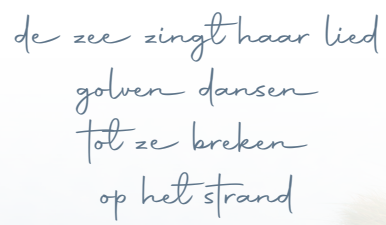 de zee zingt haar lied
golven dansen
tot ze breken
op het strand